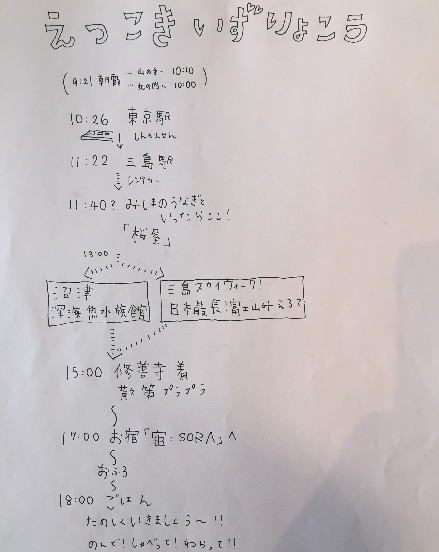 えっこきいずりょこう
10:10
10:00
10:26 東京駅
しんかんせん
11:22 三島駅
レンタカー
11:40? みしまのうなぎと
いったらここ!
「桜家」
13:00
沼津
深海魚水族館
三島スカイウォーク!
日本最長:富士山叶える?
15:00 修善寺着
散策ブラブラ
17:00 お宿「宙 SORA」へ
おふろ
18:00 ごはん
たのしくいきましょう〜!!
のんで!しゃべって!わらって!!